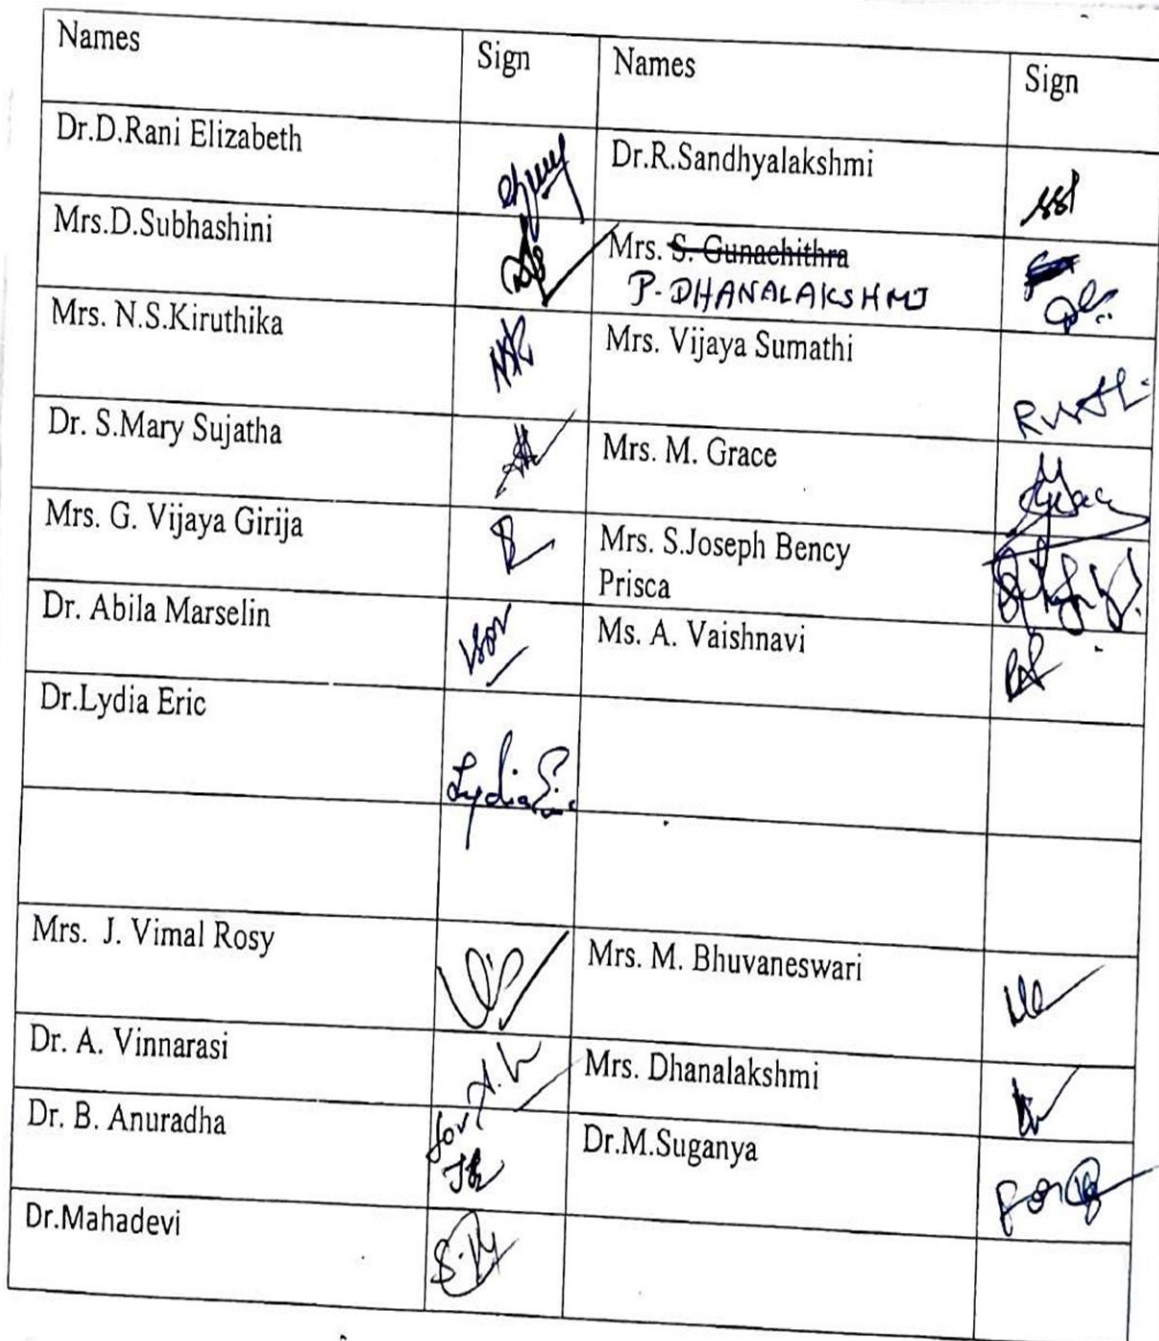 Names Sign Names Sign
Dr.D.Rani Elizabeth Dr.R.Sandhyalakshmi
Mrs.D.Subhashini Mrs. S. Gunachithra
P. DHANALAKSHMI
Mrs. N.S.Kiruthika Mrs. Vijaya Sumathi
Dr. S.Mary Sujatha Mrs. M. Grace
Mrs. G. Vijaya Girija Mrs. S.Joseph Bency
Prisca
Dr. Abila Marselin Ms. A. Vaishnavi
Dr.Lydia Eric
Lydia
Mrs. J. Vimal Rosy Mrs. M. Bhuvaneswari
Dr. A. Vinnarasi Mrs. Dhanalakshmi
Dr. B. Anuradha for Dr.M.Suganya
for
Dr.Mahadevi